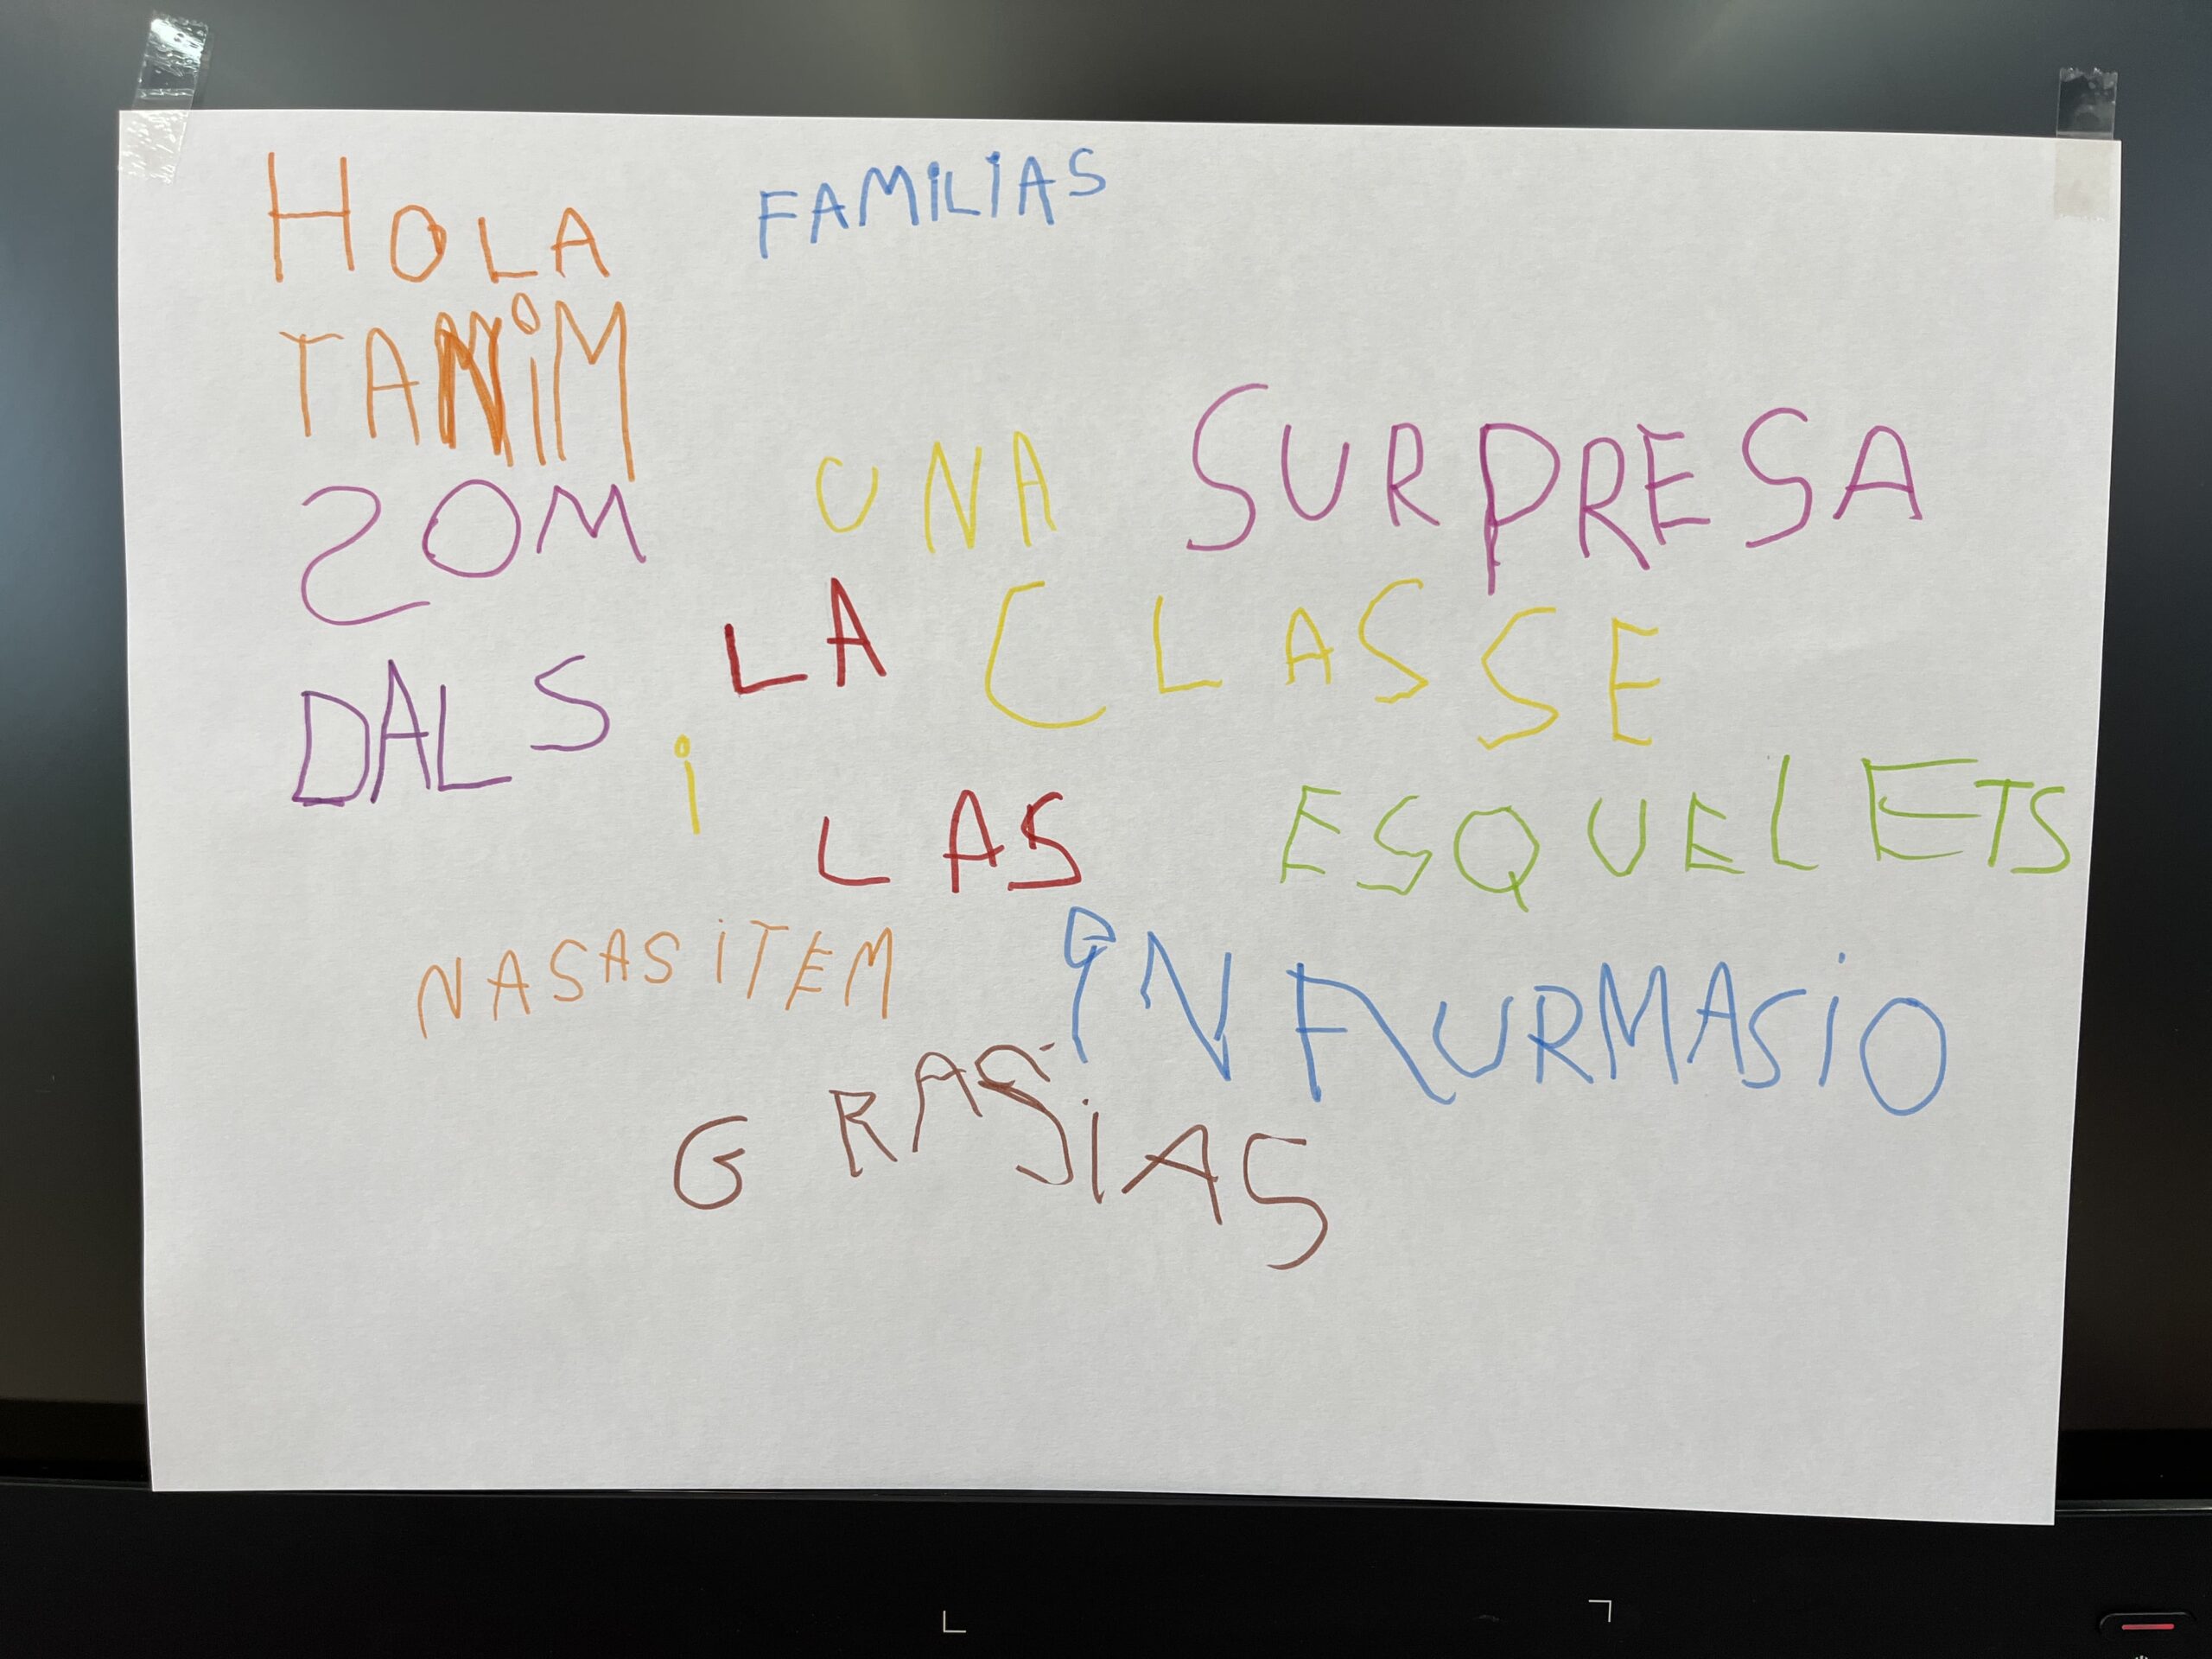 HOLA FAMILIAS
TANIM UNA SURPRESA
SOM LA CLASSE
DALS i LAS ESQUELETS
NASASITEM INFURMASIO
GRASIAS